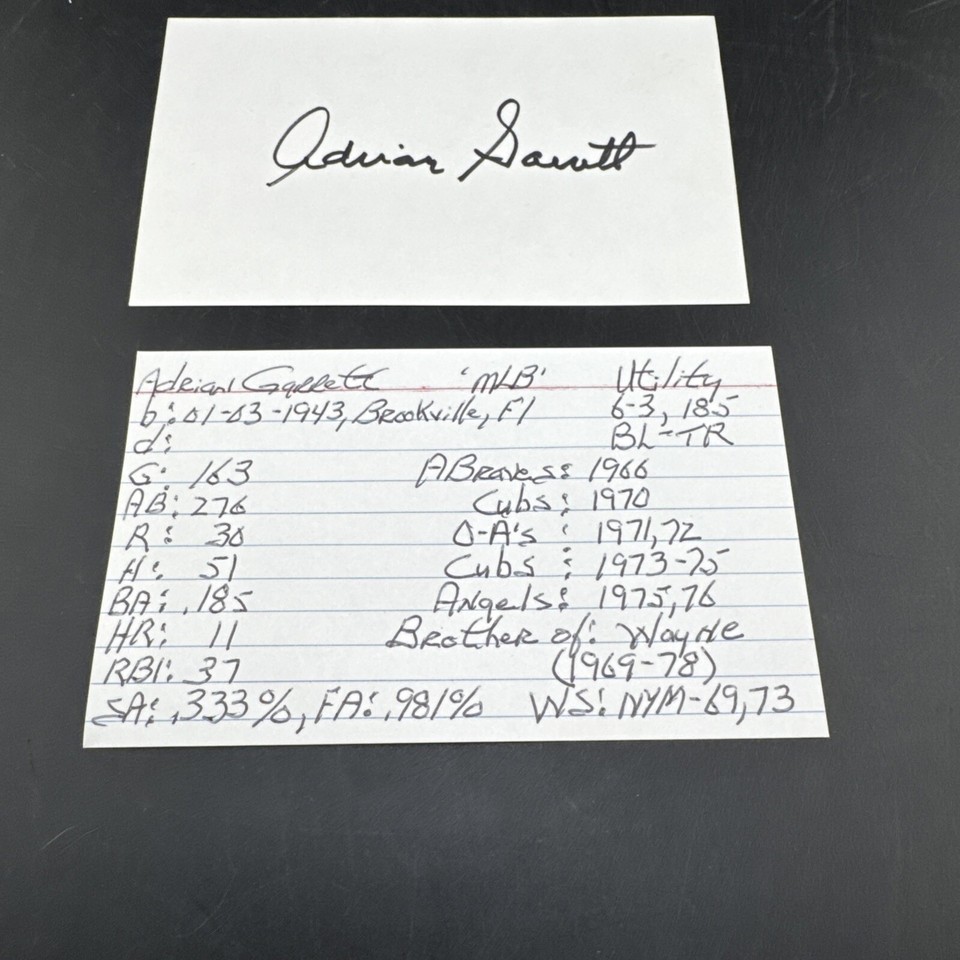 Adrian Garrett
Adrian Garrett 'MLB' Utility
b: 01-03-1943, Brookville, Fl 6-3, 185
d: BL-TR
G: 163 ABraves: 1966
AB: 276 Cubs: 1970
R: 30 O-A's: 1971,72
H: 51 Cubs: 1973-75
BA: .185 Angels: 1975,76
HR: 11 Brother of: Wayne
RBI: 37 (1969-78)
SA: .333%, FA: .981% WS: NYM-69,73